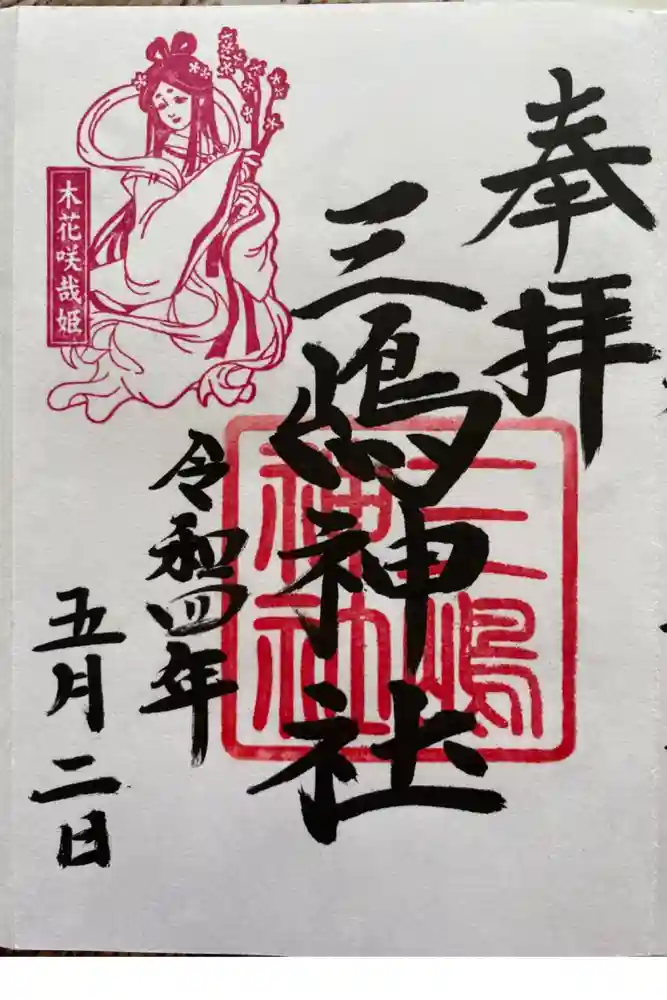 奉拝
三嶋神社
三嶋
神社
令和四年
五月二日
木花咲哉姫